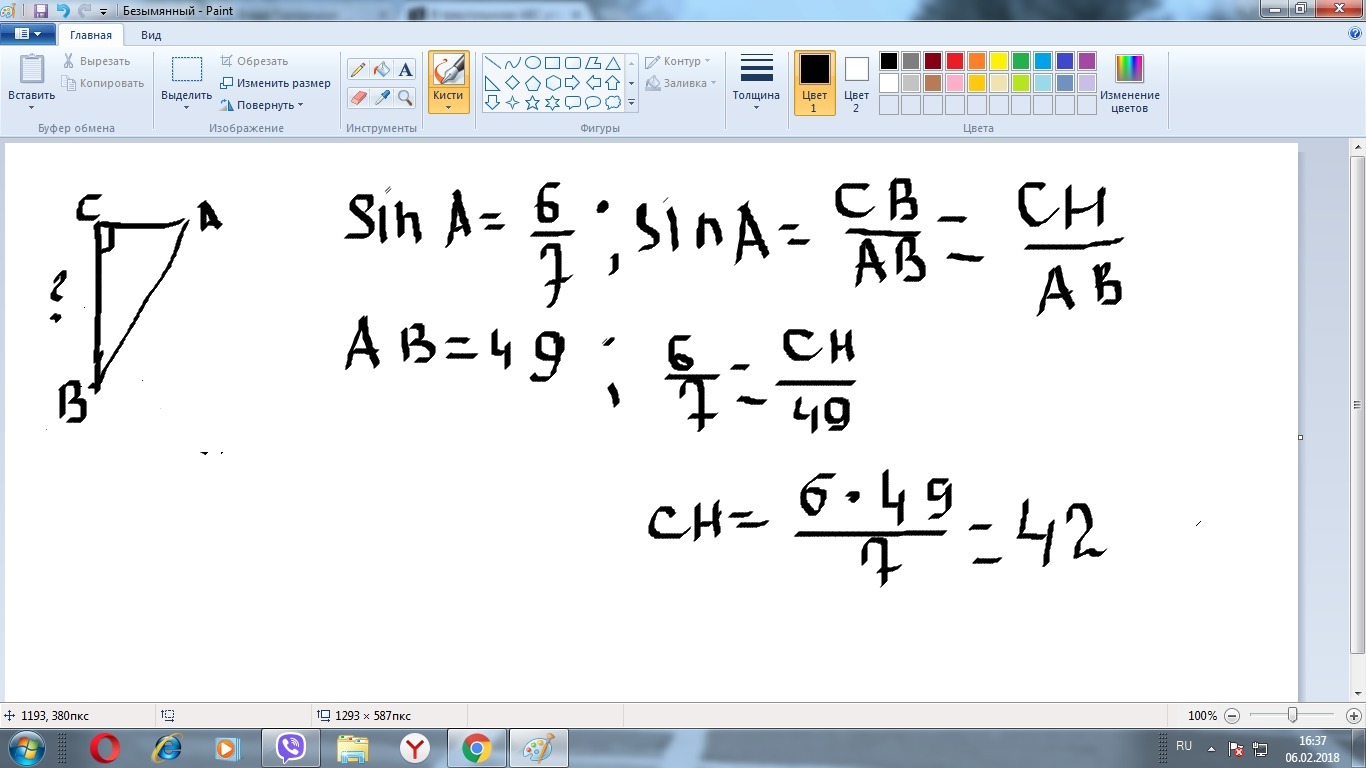 Безымянный - Paint
Главная Вид
Вставить
Вырезать
Копировать
Буфер обмена
Выделить
Обрезать
Изменить размер
Повернуть
Изображение
A
Инструменты
Кисти
Контур
Заливка
Фигуры
Толщина
Цвет 1
Цвет 2
Изменение цветов
Цвета
C A
?
B
Sin A = 6/7 ; sin A = CB/AB = CH/AB
AB = 49 ; 6/7 = CH/49
CH = 6·49/7 = 42
1193, 380пкс 1293 × 587пкс 100%
RU 16:37
06.02.2018